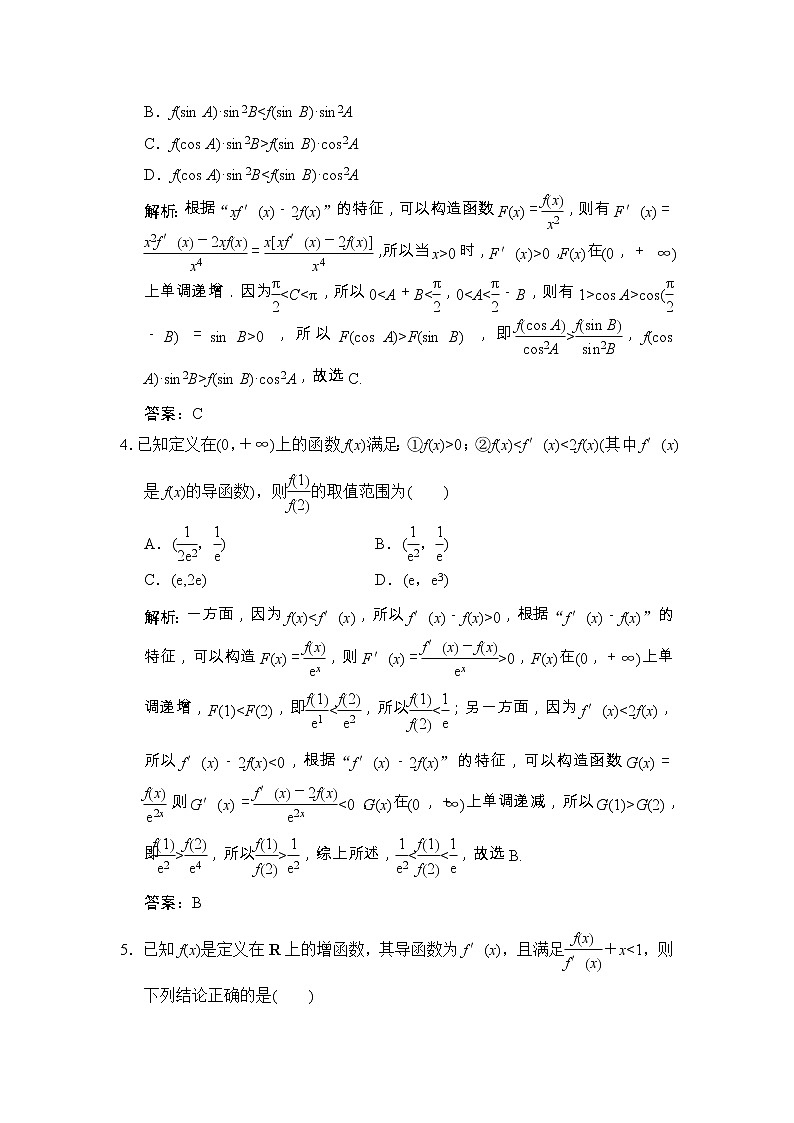 B．f(sin A)·sin²B<f(sin B)·sin²A
C．f(cos A)·sin²B>f(sin B)·cos²A
D．f(cos A)·sin²B<f(sin B)·cos²A
解析：根据“xf′(x)－2f(x)”的特征，可以构造函数F(x)＝f(x)/x²，则有F′(x)＝
x²f′(x)－2xf(x)/x⁴＝x[xf′(x)－2f(x)]/x⁴，所以当x>0时，F′(x)>0，F(x)在(0，＋∞)
上单调递增．因为π/2<C<π，所以0<A＋B<π/2，0<A<π/2－B，则有1>cos A>cos(π/2
－B)＝sin B>0，所以F(cos A)>F(sin B)，即f(cos A)/cos²A>f(sin B)/sin²B，f(cos
A)·sin²B>f(sin B)·cos²A，故选C.
答案：C
4．已知定义在(0，＋∞)上的函数f(x)满足：①f(x)>0；②f(x)<f′(x)<2f(x)(其中f′(x)
是f(x)的导函数)，则f(1)/f(2)的取值范围为(　　)
A．(1/2e²，1/e)　　B．(1/e²，1/e)
C．(e,2e)　　D．(e，e³)
解析：一方面，因为f(x)<f′(x)，所以f′(x)－f(x)>0，根据“f′(x)－f(x)”的
特征，可以构造F(x)＝f(x)/eˣ，则F′(x)＝f′(x)－f(x)/eˣ>0，F(x)在(0，＋∞)上单
调递增，F(1)<F(2)，即f(1)/e¹<f(2)/e²，所以f(1)/f(2)<1/e；另一方面，因为f′(x)<2f(x)，
所以f′(x)－2f(x)<0，根据“f′(x)－2f(x)”的特征，可以构造函数G(x)＝
f(x)/e²ˣ，则G′(x)＝f′(x)－2f(x)/e²ˣ<0，G(x)在(0，＋∞)上单调递减，所以G(1)>G(2)，
即f(1)/e²>f(2)/e⁴，所以f(1)/f(2)>1/e²，综上所述，1/e²<f(1)/f(2)<1/e，故选B.
答案：B
5．已知f(x)是定义在R上的增函数，其导函数为f′(x)，且满足f(x)/f′(x)＋x<1，则
下列结论正确的是(　　)